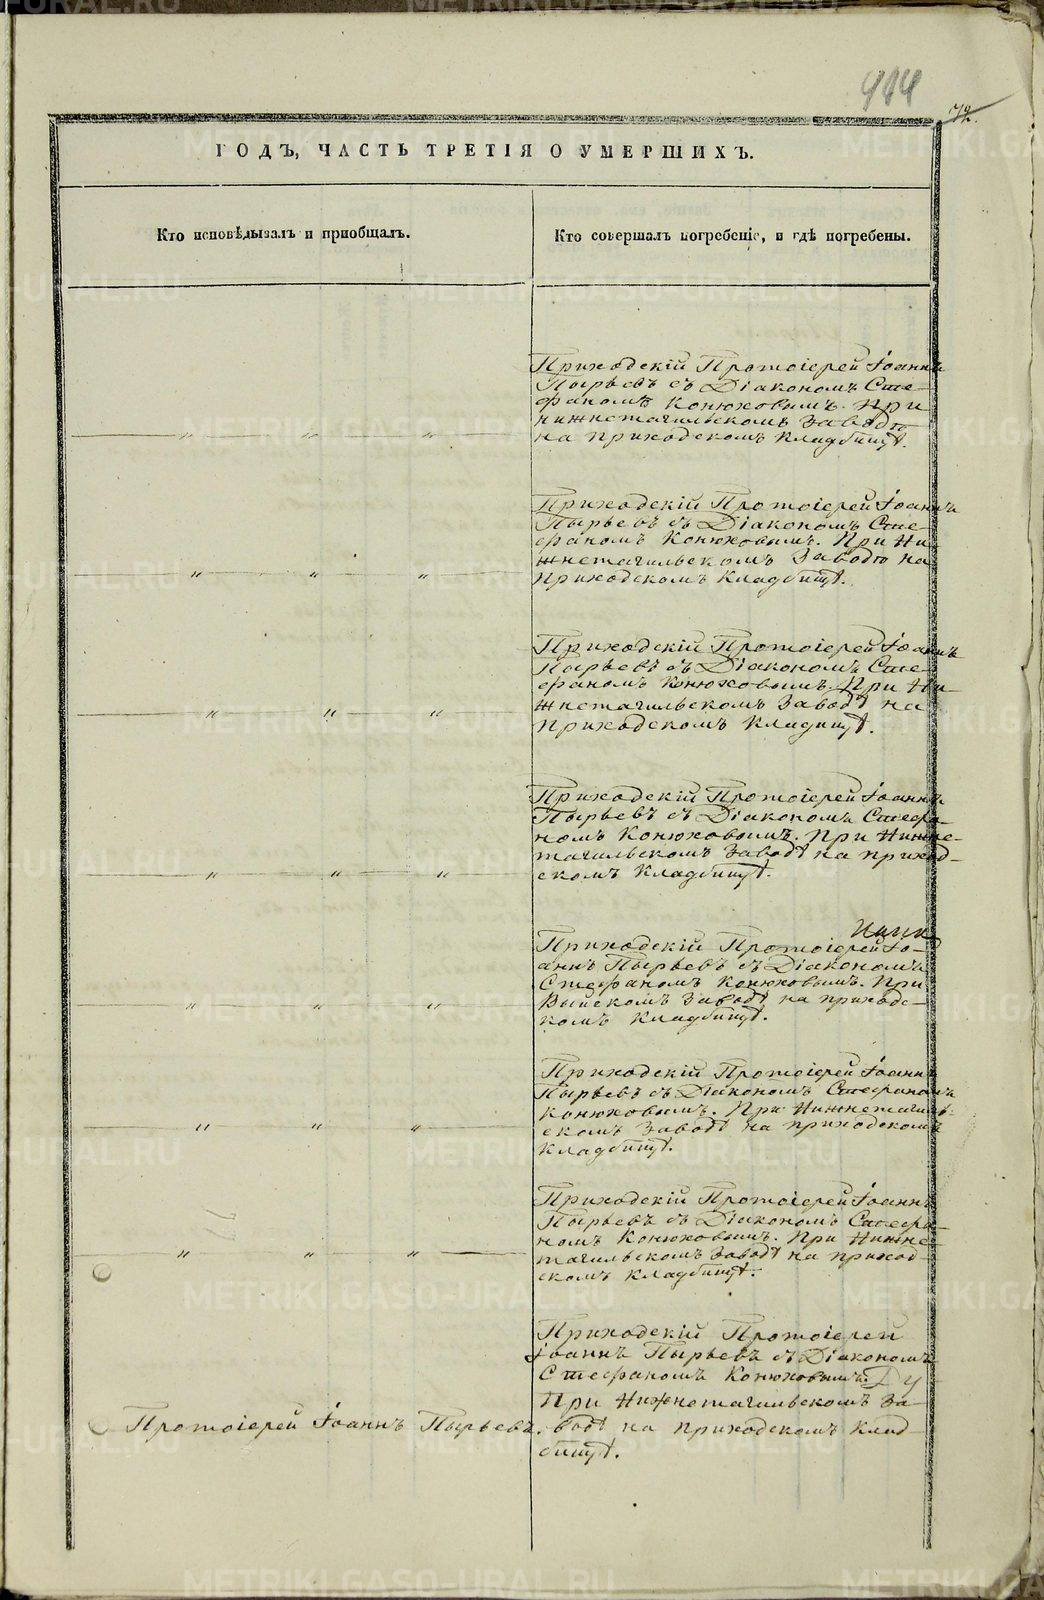 METRIKI.GASO-URAL.RU
72.
ГОДЪ, ЧАСТЬ ТРЕТІЯ О УМЕРШИХЪ.
Кто исповѣдывалъ и пріобщалъ.
Кто совершалъ погребеніе, и гдѣ погребены.
Приходскій Протоіерей Іоаннъ
Пырьевъ съ Діакономъ Сте-
фаномъ Конюховымъ. При
нижнетагильскомъ Заводѣ
на приходскомъ Кладбищѣ.
" " "
Приходскій Протоіерей Іоаннъ
Пырьевъ съ Діакономъ Сте-
фаномъ Конюховымъ. При Ни-
жнетагильскомъ Заводѣ на
приходскомъ Кладбищѣ.
" " "
Приходскій Протоіерей Іоаннъ
Пырьевъ съ Діакономъ Сте-
фаномъ Конюховымъ. При Ни-
жнетагильскомъ Заводѣ на
приходскомъ Кладищѣ.
" " "
Приходскій Протоіерей Іоаннъ
Пырьевъ съ Діакономъ Стефа-
номъ Конюховымъ. При Нижне-
тагильскомъ Заводѣ на приход-
скомъ Кладбищѣ.
" " "
Приходскій Протоіерей Іо-
аннъ Пырьевъ съ Діакономъ
Стефаномъ Конюховымъ. При
Выйскомъ Заводѣ на приходс-
комъ Кладбищѣ.
" " "
Приходскій Протоіерей Іоаннъ
Пырьевъ съ Діакономъ Стефаномъ
Конюховымъ. При Нижнетагиль-
скомъ Заводѣ на приходскомъ
Кладбищѣ.
" " "
Приходскій Протоіерей Іоаннъ
Пырьевъ съ Діакономъ Стефа-
номъ Конюховымъ. При Нижне-
тагильскомъ Заводѣ на приход-
скомъ Кладбищѣ.
" " "
Приходскій Протоіерей
Іоаннъ Пырьевъ съ Діакономъ
Стефаномъ Конюховымъ.
При Нижнетагильскомъ За-
Протоіерей Іоаннъ Пырьевъ.
водѣ на приходскомъ Клад-
бищѣ.